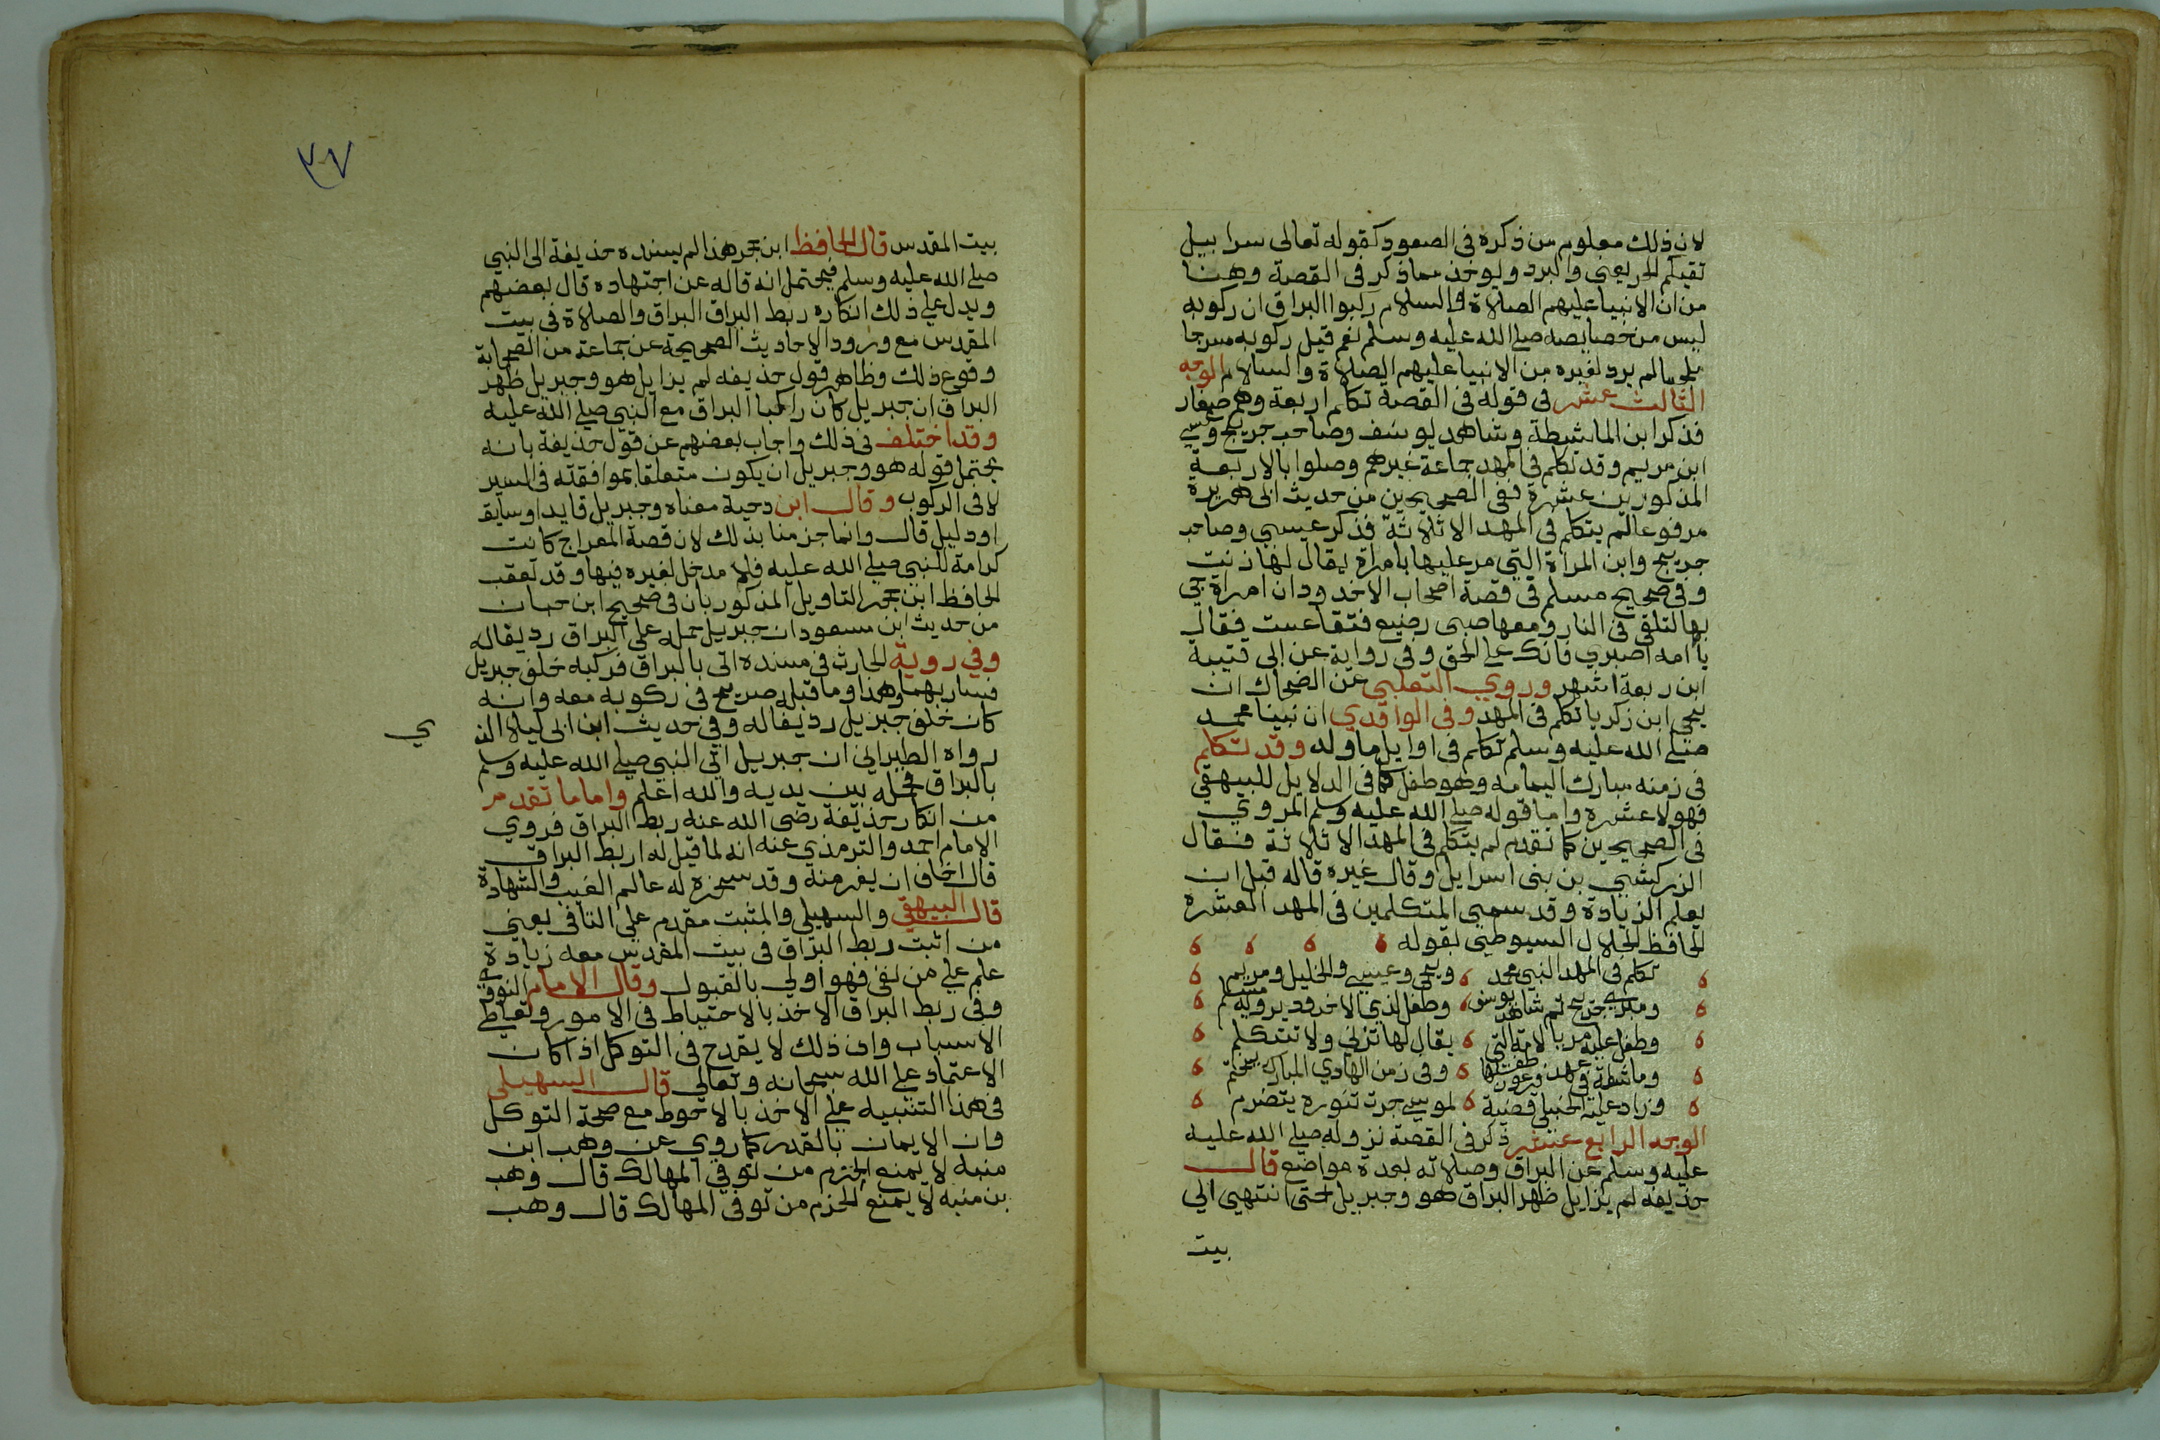 لان ذلك معلوم من ذكره في الصعود كقوله تعالى سرابيل
تقيكم الحر يعني والبرد ويوخذ مما ذكر في القصة وهنا
من ان الانبيا عليهم الصلاة والسلام ركبوا البراق ان ركوبه
ليس من خصايصه صلى الله عليه وسلم نعم قيل ركوبه مسرجا
ملجما لم يرد لغيره من الانبيا عليهم الصلاة والسلام الوجه
الثالث عشر في قوله في القصة تكلم اربعة وهم صغار
فذكر ابن الماشطة وشاهد يوسف وصاحب جريج وعيسي
ابن مريم وقد تكلم في المهد جماعة غيرهم وصلوا بالاربعة
المذكورين عشرة ففي الصحيحين من حديث ابي هريرة
مرفوعا لم يتكلم في المهد الا ثلاثة فذكر عيسي وصاحب
جريج وابن المراة التي مر عليها بامراة يقال لها زنت
وفي صحيح مسلم في قصة اصحاب الاخدود ان امراة جي
بها لتلقي في النار ومعها صبي رضيع فتقاعست فقال
يا امه اصبري فانك على الحق وفي رواية عن ابي قتيبة
ابن ربعة اشهر وروي الثعلبي عن الضحاك ان
يحي ابن زكريا تكلم في المهد وفي الواقدي ان نبينا محمد
صلى الله عليه وسلم تكلم في اوايل ما ولد وقد تكلم
في زمنه مبارك اليمامه وهو طفل كما في الدلايل للبيهقي
فهولا عشره واما قوله صلى الله عليه وسلم المروي
في الصحيحين كما تقدم لم يتكلم في المهد الا ثلاثة فقال
الزركشي بن بني اسرايل وقال غيره قاله قبل ان
يعلم الزيادة وقد سمي المتكلمين في المهد العشرة
الحافظ الجلال السيوطي بقوله
تكلم في المهد النبي محمد ويحي وعيسي والخليل ومريم
ومبري جريج ثم شاهد يوسف وطفل لذي الاخدود يرويه مسلم
وطفل عليه مر بالامة التي يقال لها تزني ولا تتكلم
وماشطة في عهد فرعون طفلها وفي زمن الهادي المبارك يختم
وزاد عليه الحنبلي قضية لموسي جرت تنوره يتضرم
الوجه الرابع عشر ذكر في القصة نزوله صلى الله عليه
عليه وسلم عن البراق وصلاته بعدة مواضع قال
حذيفه لم يزايل ظهر البراق هو وجبريل حتى انتهي الي
بيت
٣٧
بيت المقدس قال الحافظ ابن حجر هذا لم يسنده حذيفة الى النبي
صلى الله عليه وسلم فيحتمل انه قاله عن اجتهاده قال بعضهم
ويدل على ذلك انكاره ربط البراق البراق والصلاة في بيت
المقدس مع ورود الاحاديث الصحيحة عن جماعة من الصحابة
وقوع ذلك وظاهر قول حذيفه لم يزايل هو وجبريل ظهر
البراق ان جبريل كان راكبا البراق مع النبي صلى الله عليه
وقد اختلف في ذلك واجاب بعضهم عن قول حذيفة بانه
يحتمل قوله هو وجبريل ان يكون متعلقا بموافقته في السير
لا في الركوب وقال ابن دحية معناه وجبريل قايد او سايق
او دليل قال وانما جزمنا بذلك لان قصة المعراج كانت
كرامة للنبي صلى الله عليه فلا مدخل لغيره فيها وقد تعقب
الحافظ ابن حجر التاويل المذكور بان في صحيح ابن حبان
من حديث ابن مسعود ان جبريل حمله على البراق رديفا له
وفي روية الحارث في مسنده اتى بالبراق فركبه خلف جبريل
فسار بهما وهذا وما قبله صريح في ركوبه معه وانه
كان خلف جبريل رديفا له وفي حديث ابن ابي ليلا الذ
ي
رواه الطبراني ان جبريل اتي النبي صلى الله عليه وسلم
بالبراق فحمله بين يديه والله اعلم واما ما تقدم
من انكار حذيفة رضي الله عنه ربط البراق فروي
الامام احمد والترمذي عنه انه لما قيل له اربط البراق
قال اخاف ان يفر منه وقد سخره له عالم الغيب والشهادة
قال البيهقي والسهيلي والمثبت مقدم علي النافي يعني
من اثبت ربط البراق في بيت المقدس معه زيادة
علم علي من نفي فهو اولي بالقبول وقال الامام النووي
وفي ربط البراق الاخذ بالاحتياط في الامور وتعاطي
الاسباب وان ذلك لا يقدح في التوكل اذا كان
الاعتماد علي الله سبحانه وتعالي قال السهيلي
في هذا التنبيه علي الاخذ بالاحوط مع صحة التوكل
وان الايمان بالقدر كما روي عن وهب ابن
منبه لا يمنع الحزم من توقي المهالك قال وهب
بن منبه لا يمنع الحزم من توقي المهالك قال وهب